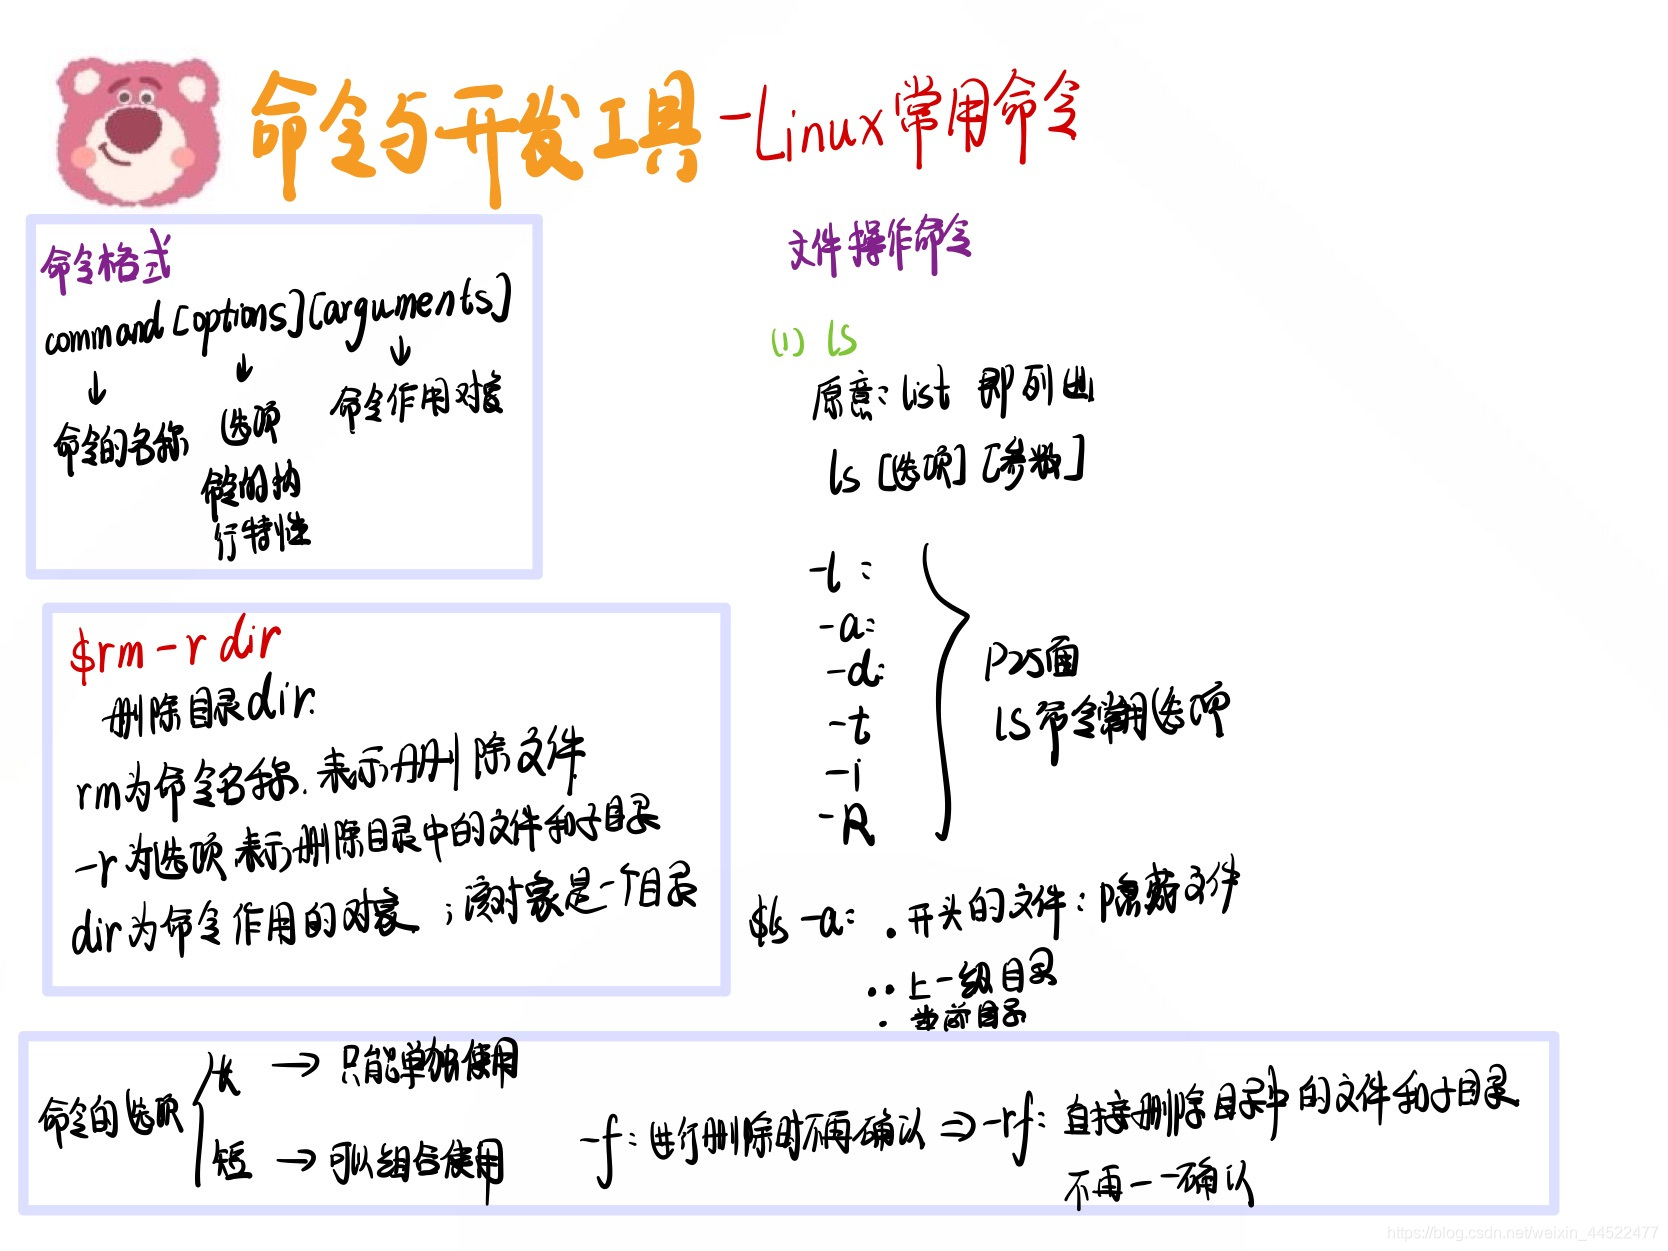 命令与开发工具-Linux常用命令
命令格式
command [options] [arguments]
↓ ↓ ↓
命令的名称 选项 命令作用对象
命令的执
行特性
$rm -r dir
删除目录dir.
rm为命令名称.表示删除文件
-r为选项,表示删除目录中的文件和子目录
dir为命令作用的对象;该对象是一个目录
文件操作命令
(1) ls
原意:list 即列出
ls [选项] [参数]
-l:
-a:
-d:
-t
-i
-R
P25面
ls命令常用选项
$ls -a: . 开头的文件:隐藏文件
.. 上一级目录
. 当前目录
命令的选项
长 → 只能单独使用
短 → 可以组合使用
-f:进行删除时不再确认 ⇒ -rf:直接删除目录中的文件和子目录
不再一一确认
https://blog.csdn.net/weixin_44522477